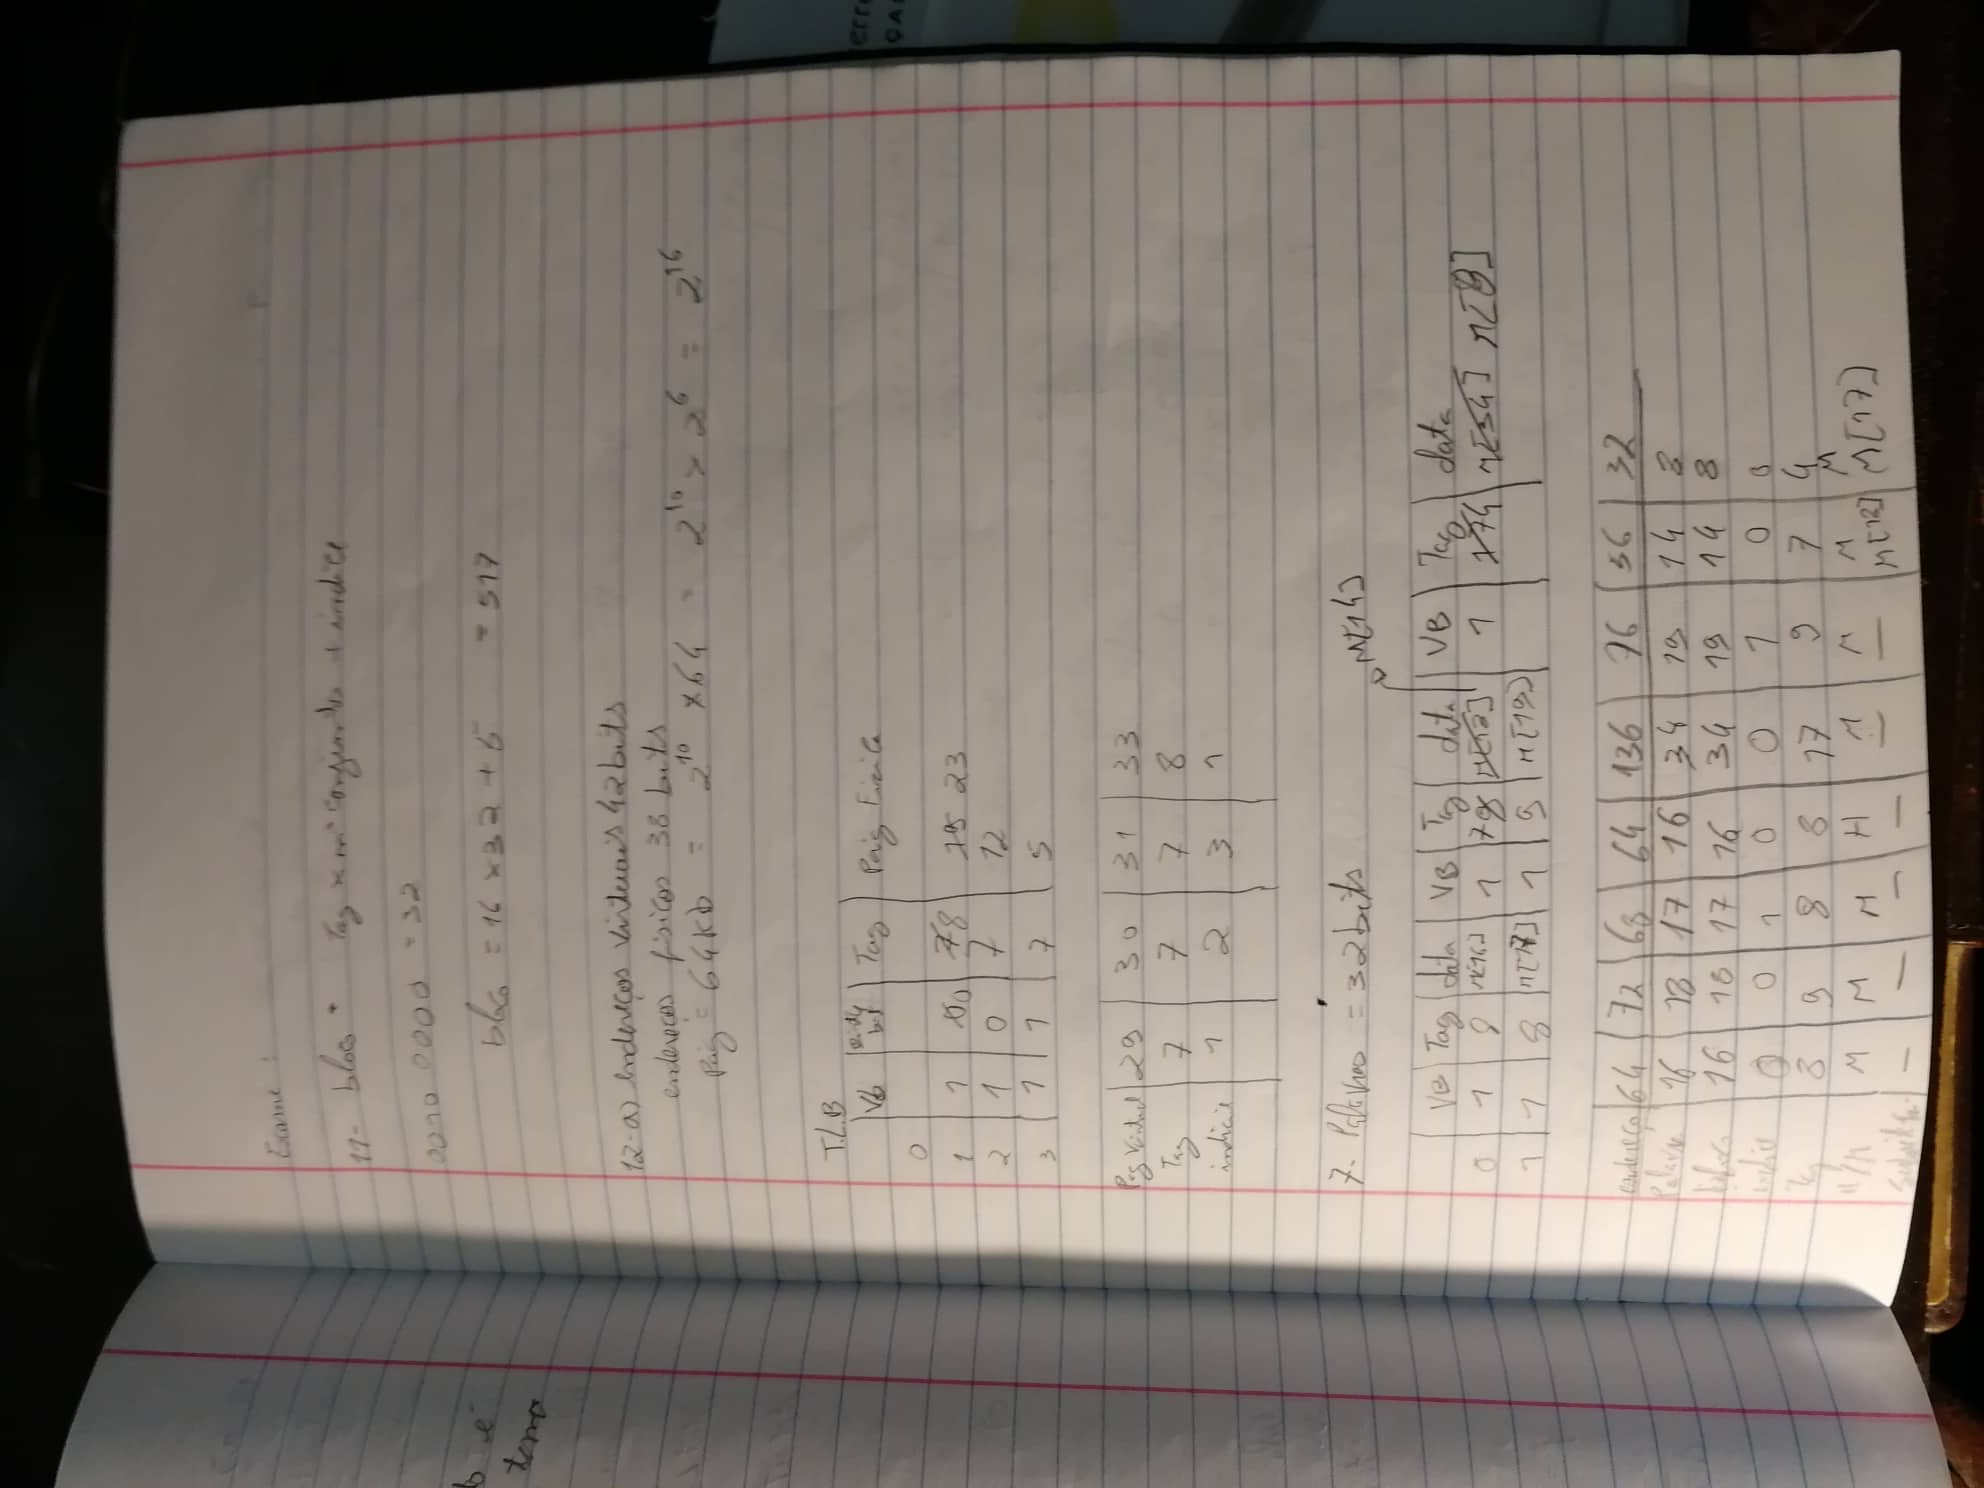 Exame:
11- bloco = Tag x nº conjunto + indice
0010 0000 = 32
bloco = 16 x 32 + 5 = 517
12-a) endereços virtuais 42 bits
endereços físicos 38 bits
Pág = 64Kb = 2^10 x 64 = 2^10 x 2^6 = 2^16
T.L.B
Vb | dirty bit | Tag | Pág Física
0
1 | 1 | | 8 | 23
2 | 1 | 0 | 7 | 12
3 | 1 | 1 | 7 | 5
Pag virtual | 29 | 30 | 31 | 33
Tag | 7 | 7 | 7 | 8
indice | 1 | 2 | 3 | 1
7- Palavras = 32 bits
M[14]
VB | Tag | data | VB | Tag | data | VB | Tag | data
0 | 1 | 8 | M[16] | 1 | | | 1 | 4 | M[34]
1 | 1 | 8 | M[17] | 1 | 9 | M[19]
endereço | 64 | 72 | 68 | 64 | 136 | 76 | 56 | 32
Palavra | 16 | 18 | 17 | 16 | 34 | 19 | 14 | 8
bloco | 16 | 18 | 17 | 16 | 34 | 19 | 14 | 8
indice | 0 | 0 | 1 | 0 | 0 | 1 | 0 | 0
Tag | 8 | 9 | 8 | 8 | 17 | 9 | 7 | 4
H/M | M | M | M | H | M | M | M | M
— | — | — | — | — | — | M[18] | M[17]
b é
tema